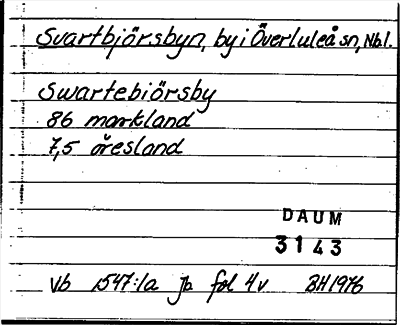 Svartbjörsbyn, by i Överluleå sn, Nb.l.
Swartebiörsby
86 markland
7,5 öresland
DAUM
3143
Vb 1547:1a jb fol 4v BH 1976